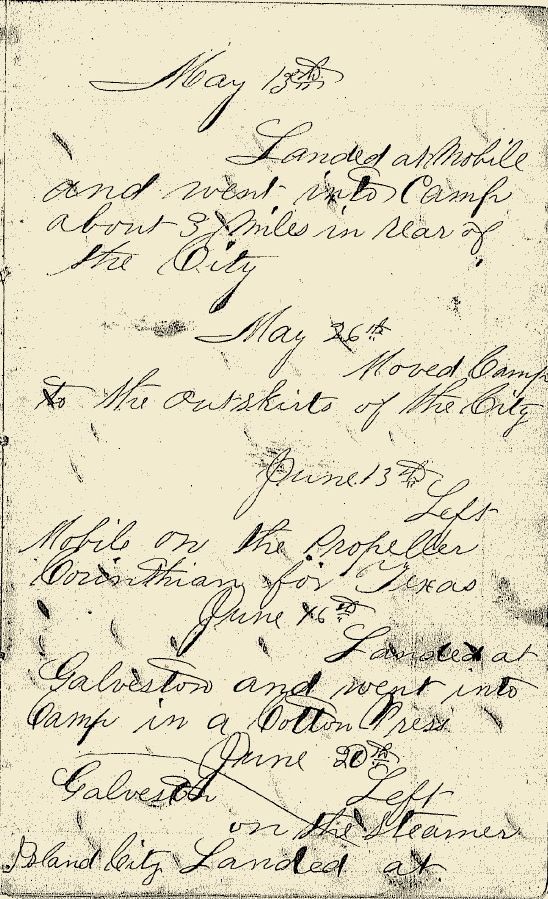 May 13th
Landed at Mobile
and went into Camp
about 3 Miles in rear of
the City
May 26th
Moved Camp
to the outskirts of the City
June 13th
Left
Mobile on the Propeller
Corinthian for Texas
June 16th
Landed at
Galveston and went into
Camp in a Cotton Press
June 20th
Galveston Left
on the Steamer
Island City Landed at